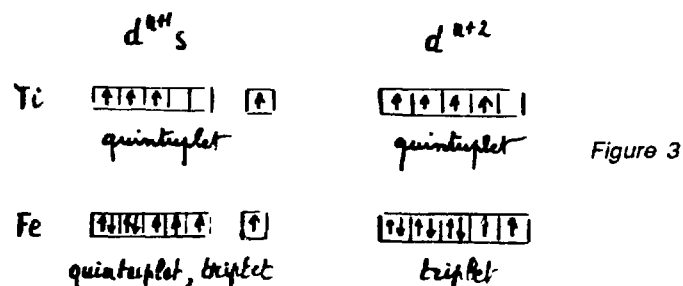 dⁿ⁺¹s dⁿ⁺²
Ti
quintuplet quintuplet
Figure 3
Fe
quintuplet, triplet triplet